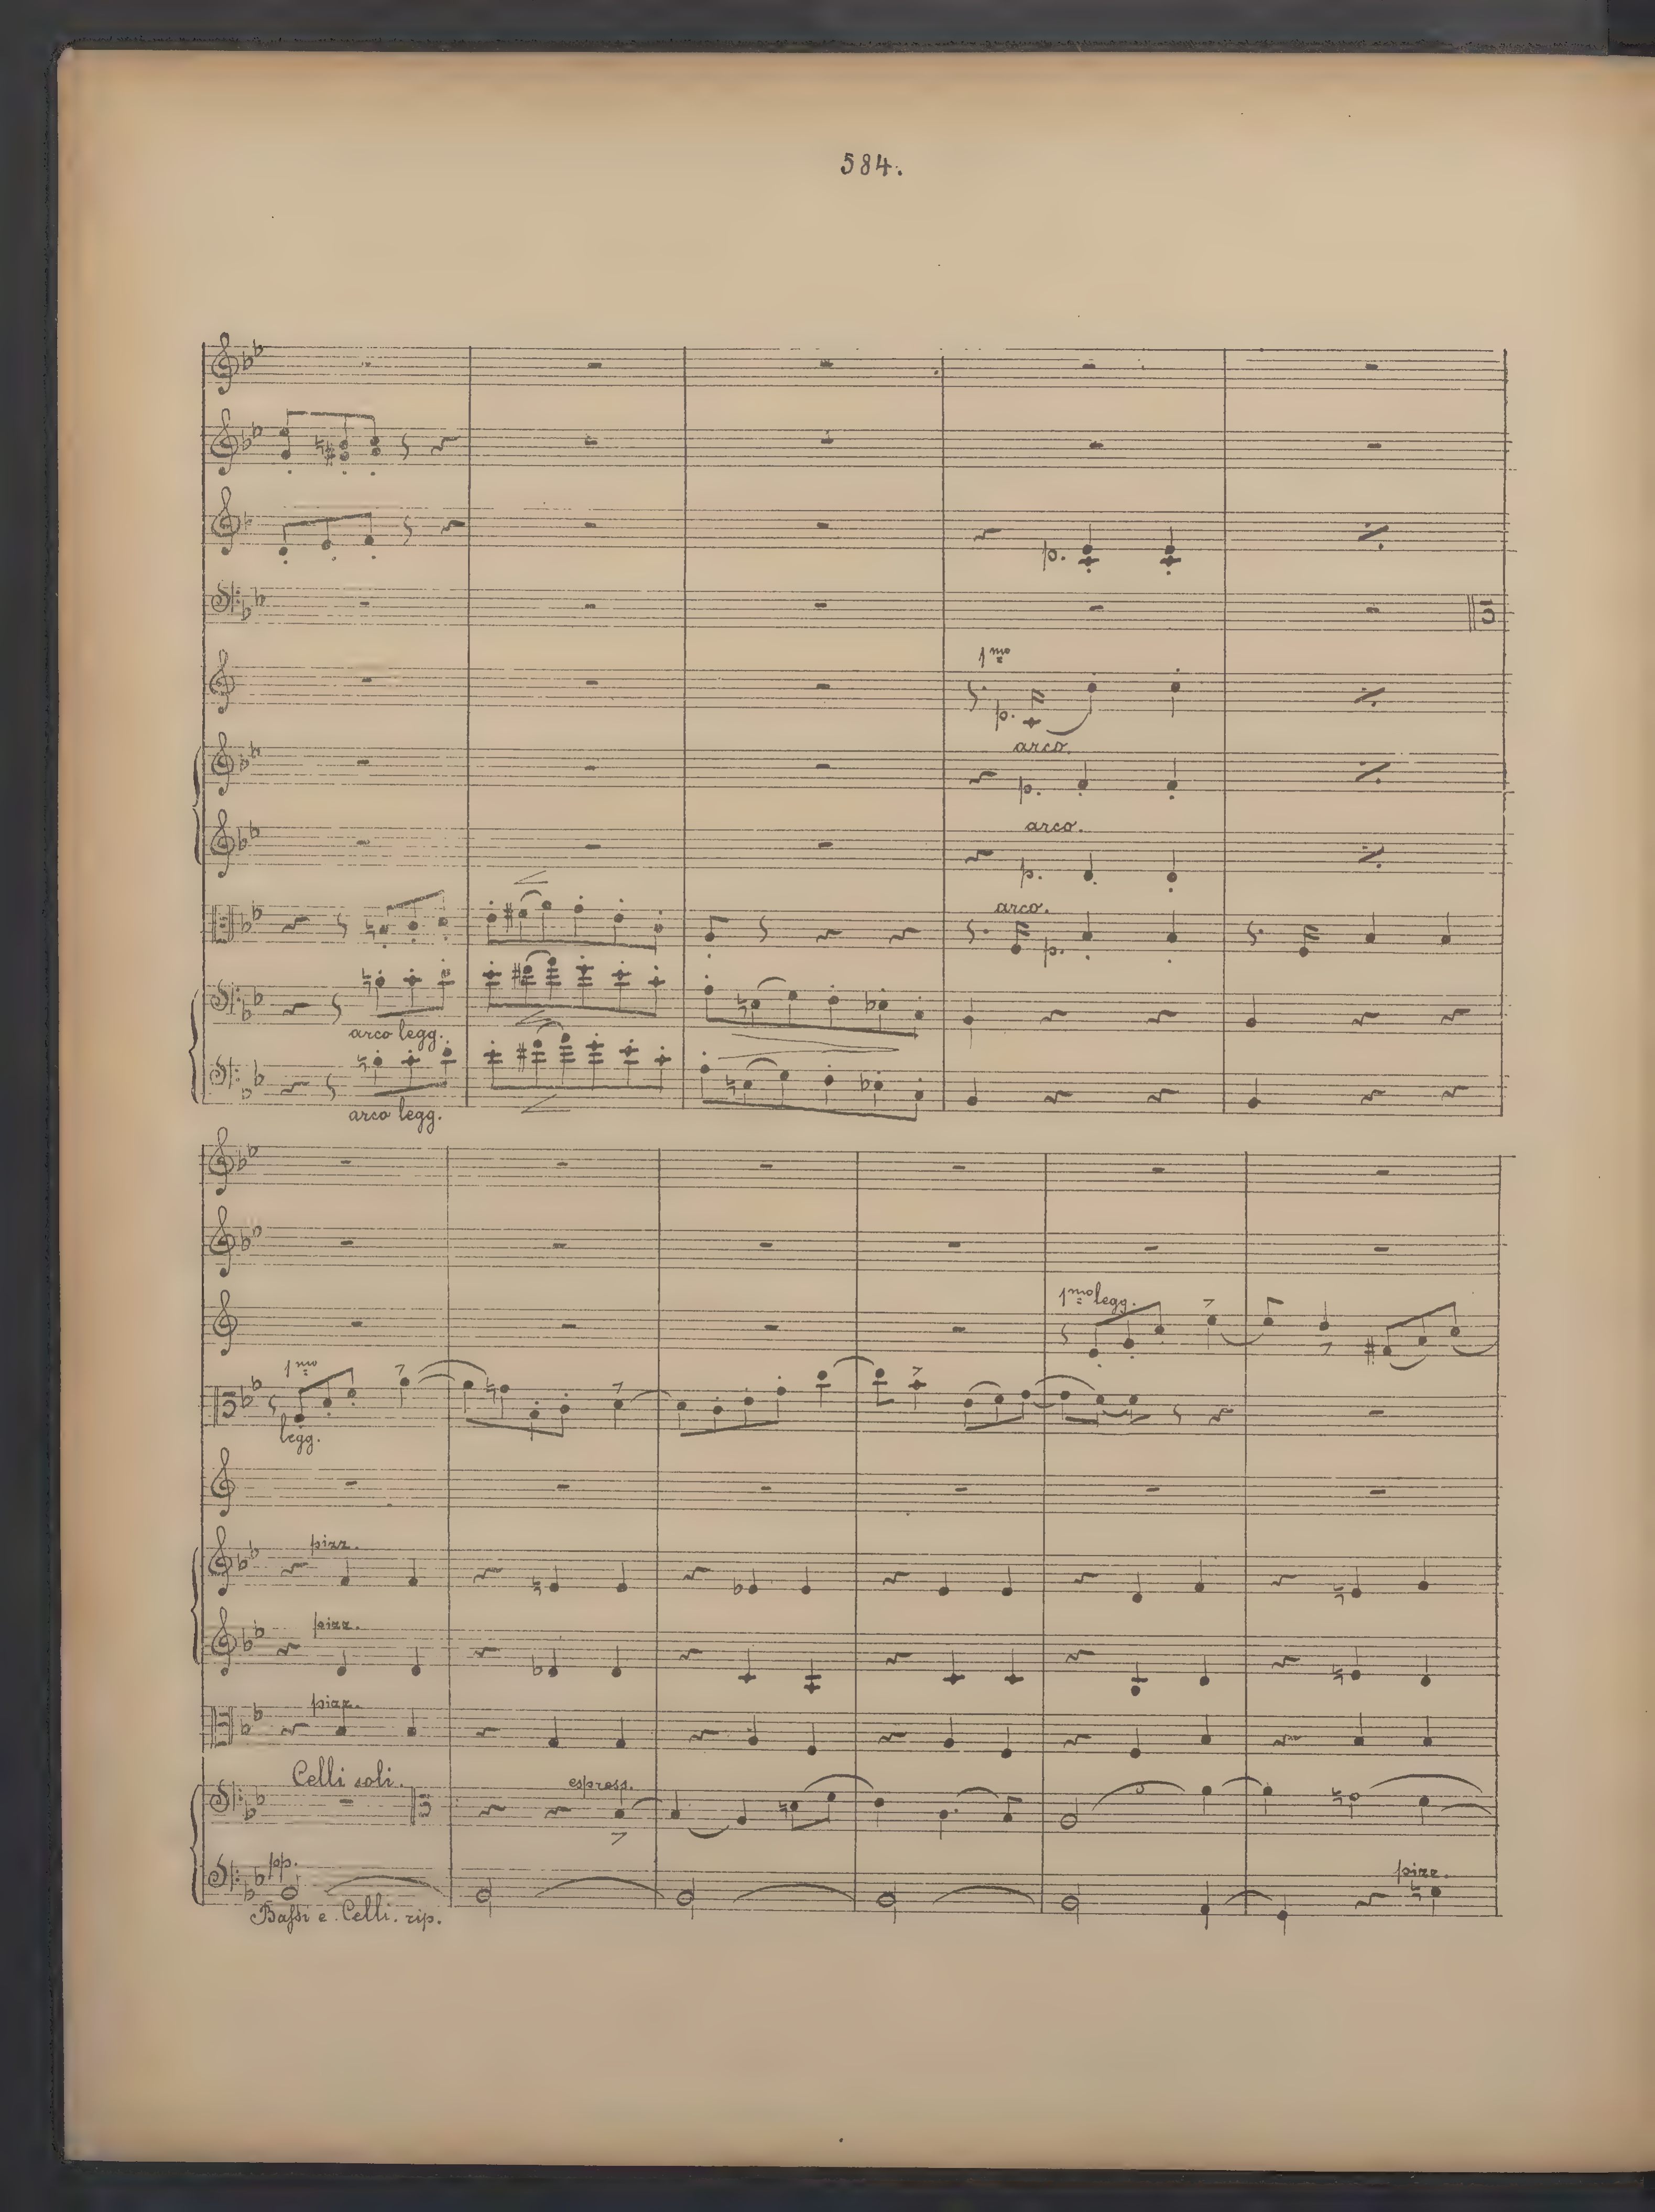 584.
p.
1mo
p.
arco.
p.
arco.
p.
arco.
p.
arco legg.
arco legg.
1mo legg.
1mo
legg.
pizz.
pizz.
pizz.
Celli soli.
espress.
pp.
pizz.
Bassi e Celli. rip.